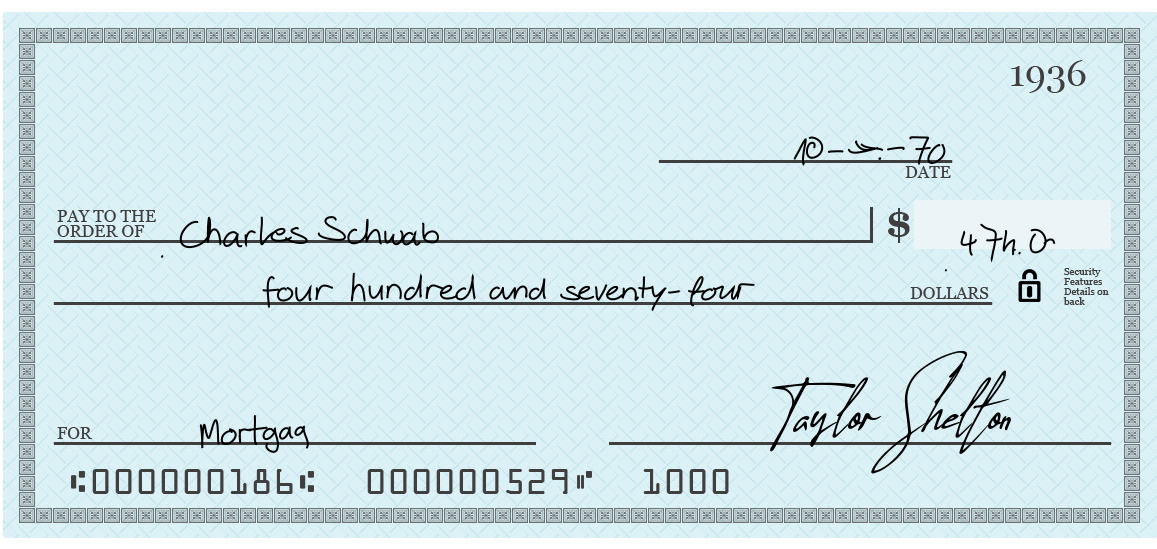 1936
DATE
PAY TO THE
ORDER OF Charles Schwab $
four hundred and seventy-four DOLLARS
Security
Features
Details on
back
FOR Mortgag Taylor Shelton
⑆000000186⑆ 000000529⑈ 1000